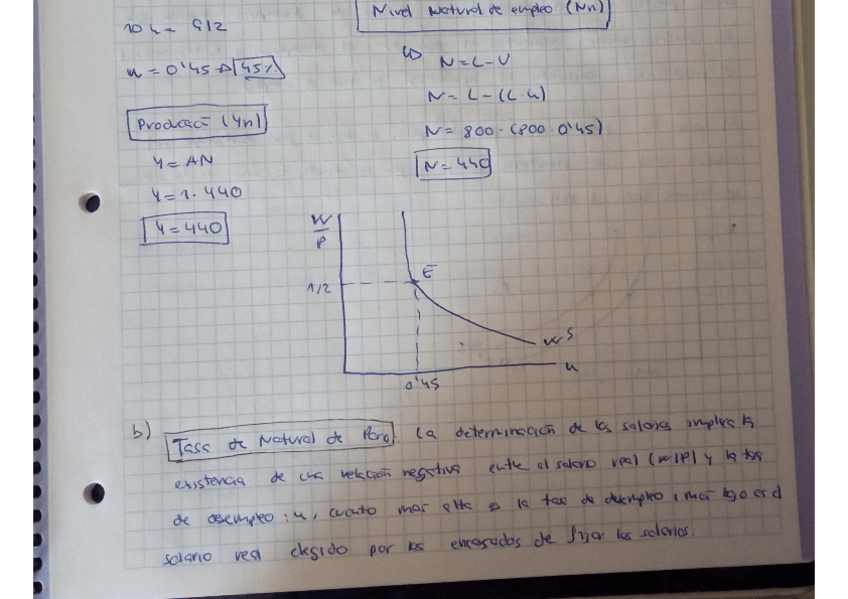 Nivel Natural de empleo (Nn)
10 u = 9/2
u = 0'45 → 45%
↳ N = L - U
N = L - (L · u)
Producció (Yn)
N = 800 - (800 · 0'45)
Y = AN
N = 440
Y = 1 · 440
Y = 440
W/P
E
1/2
WS
u
0'45
b) Tasa de Natural de Paro. La determinación de los salarios implica la
existencia de una relación negativa entre el salario real (W/P) y la tasa
de desempleo: u, cuanto mas alta es la tasa de desempleo, mas bajo es el
salario real elegido por los encargados de fijar los salarios.